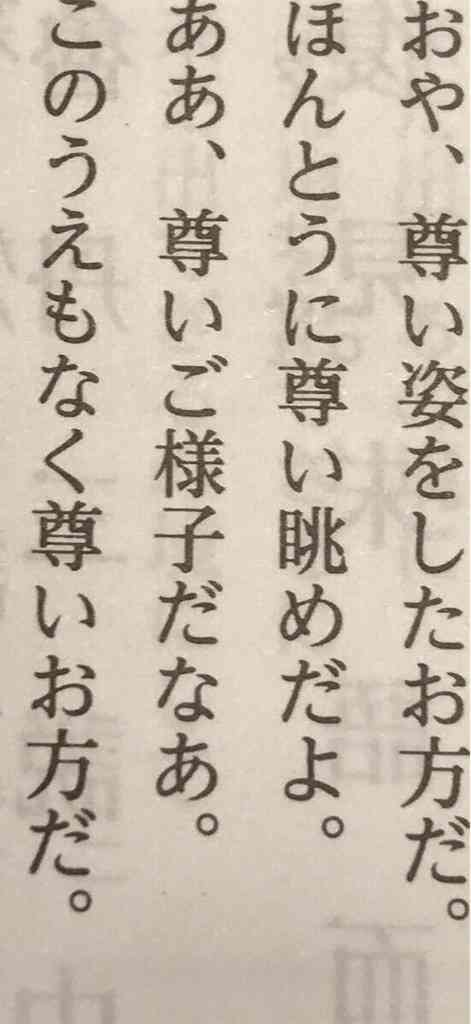 おや、尊い姿をしたお方だ。
ほんとうに尊い眺めだよ。
ああ、尊いご様子だなあ。
このうえもなく尊いお方だ。